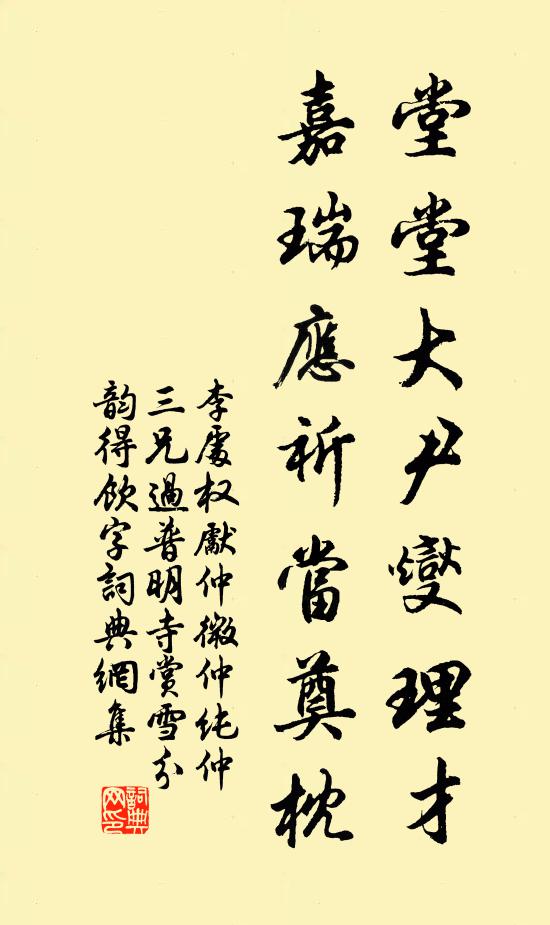 堂堂大尹燮理才
嘉瑞應祈當奠枕
李處權獻仲微仲純仲
三兄過普明寺賞雪分
韵得飲字詞典網集
詞典网印